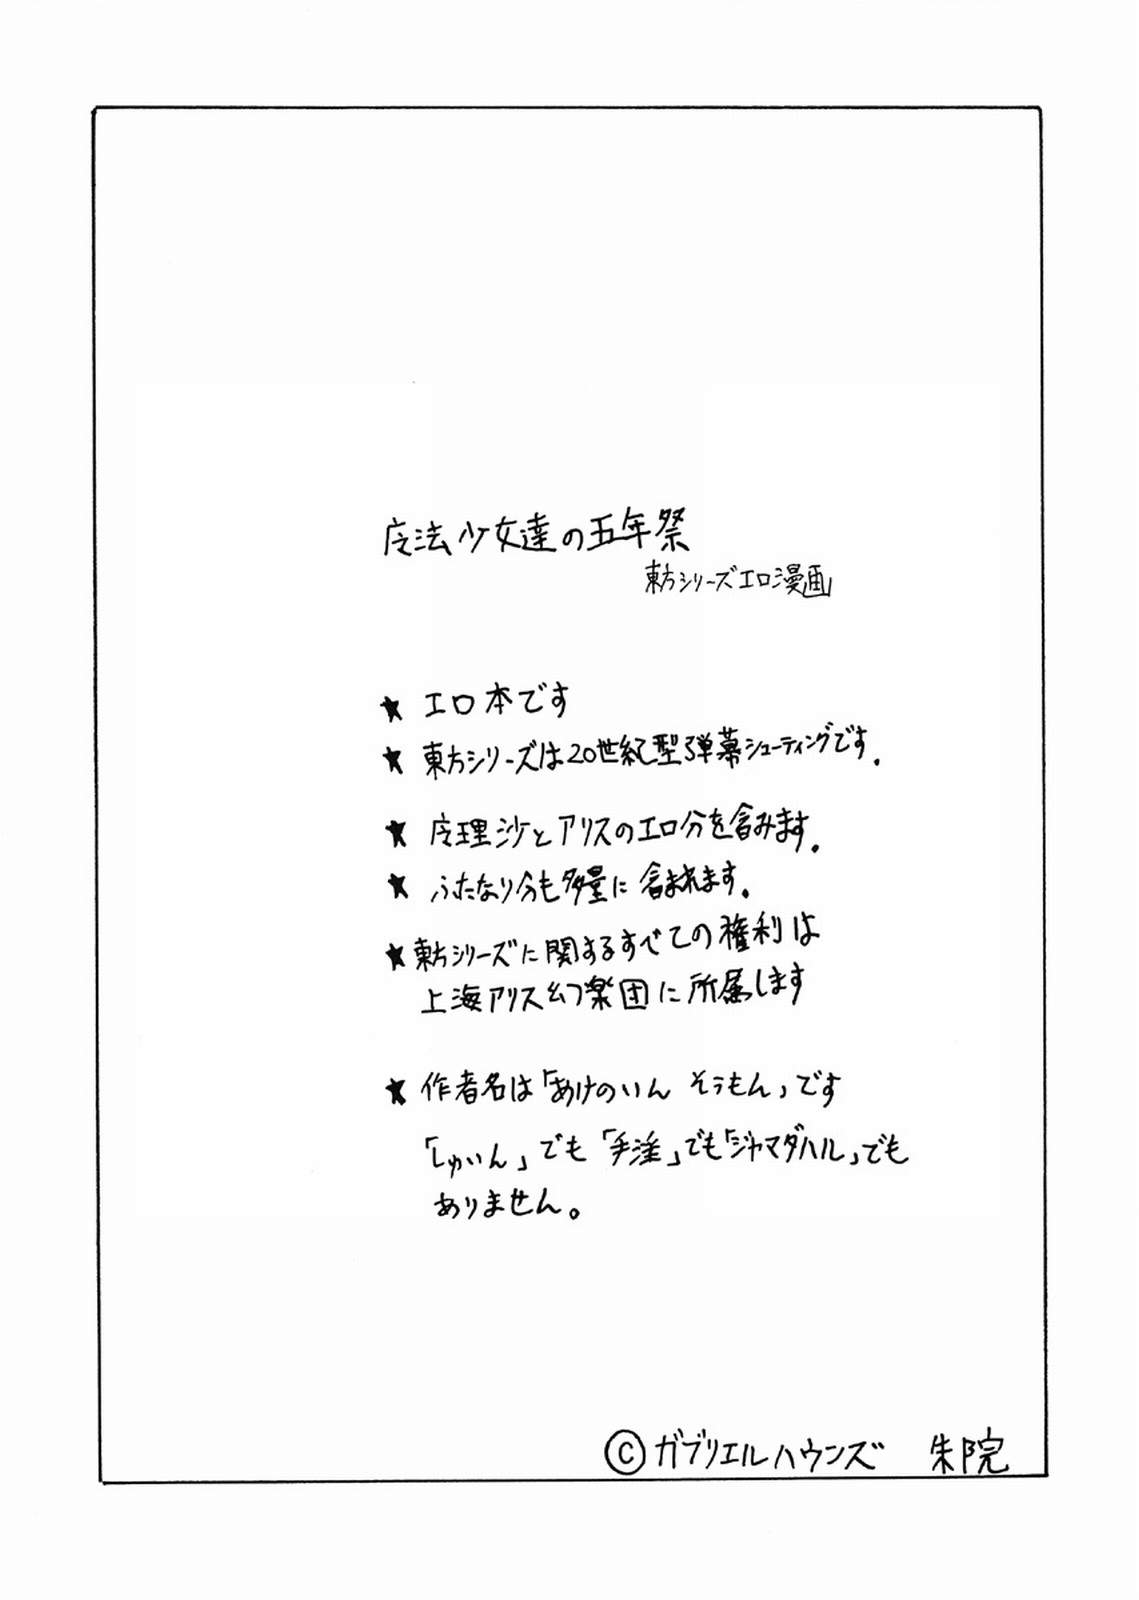 魔法少女達の五年祭
東方シリーズエロ漫画
★ エロ本です
★ 東方シリーズは20世紀型弾幕シューティングです.
★ 魔理沙とアリスのエロ分を含みます.
★ ふたなり分も多量に含まれます.
★ 東方シリーズに関するすべての権利は
上海アリス幻楽団に所属します
★ 作者名は「あけのいん そうもん」です
「しゅいん」でも「手淫」でも「ジャマダハル」でも
ありません。
©ガブリエルハウンズ 朱院